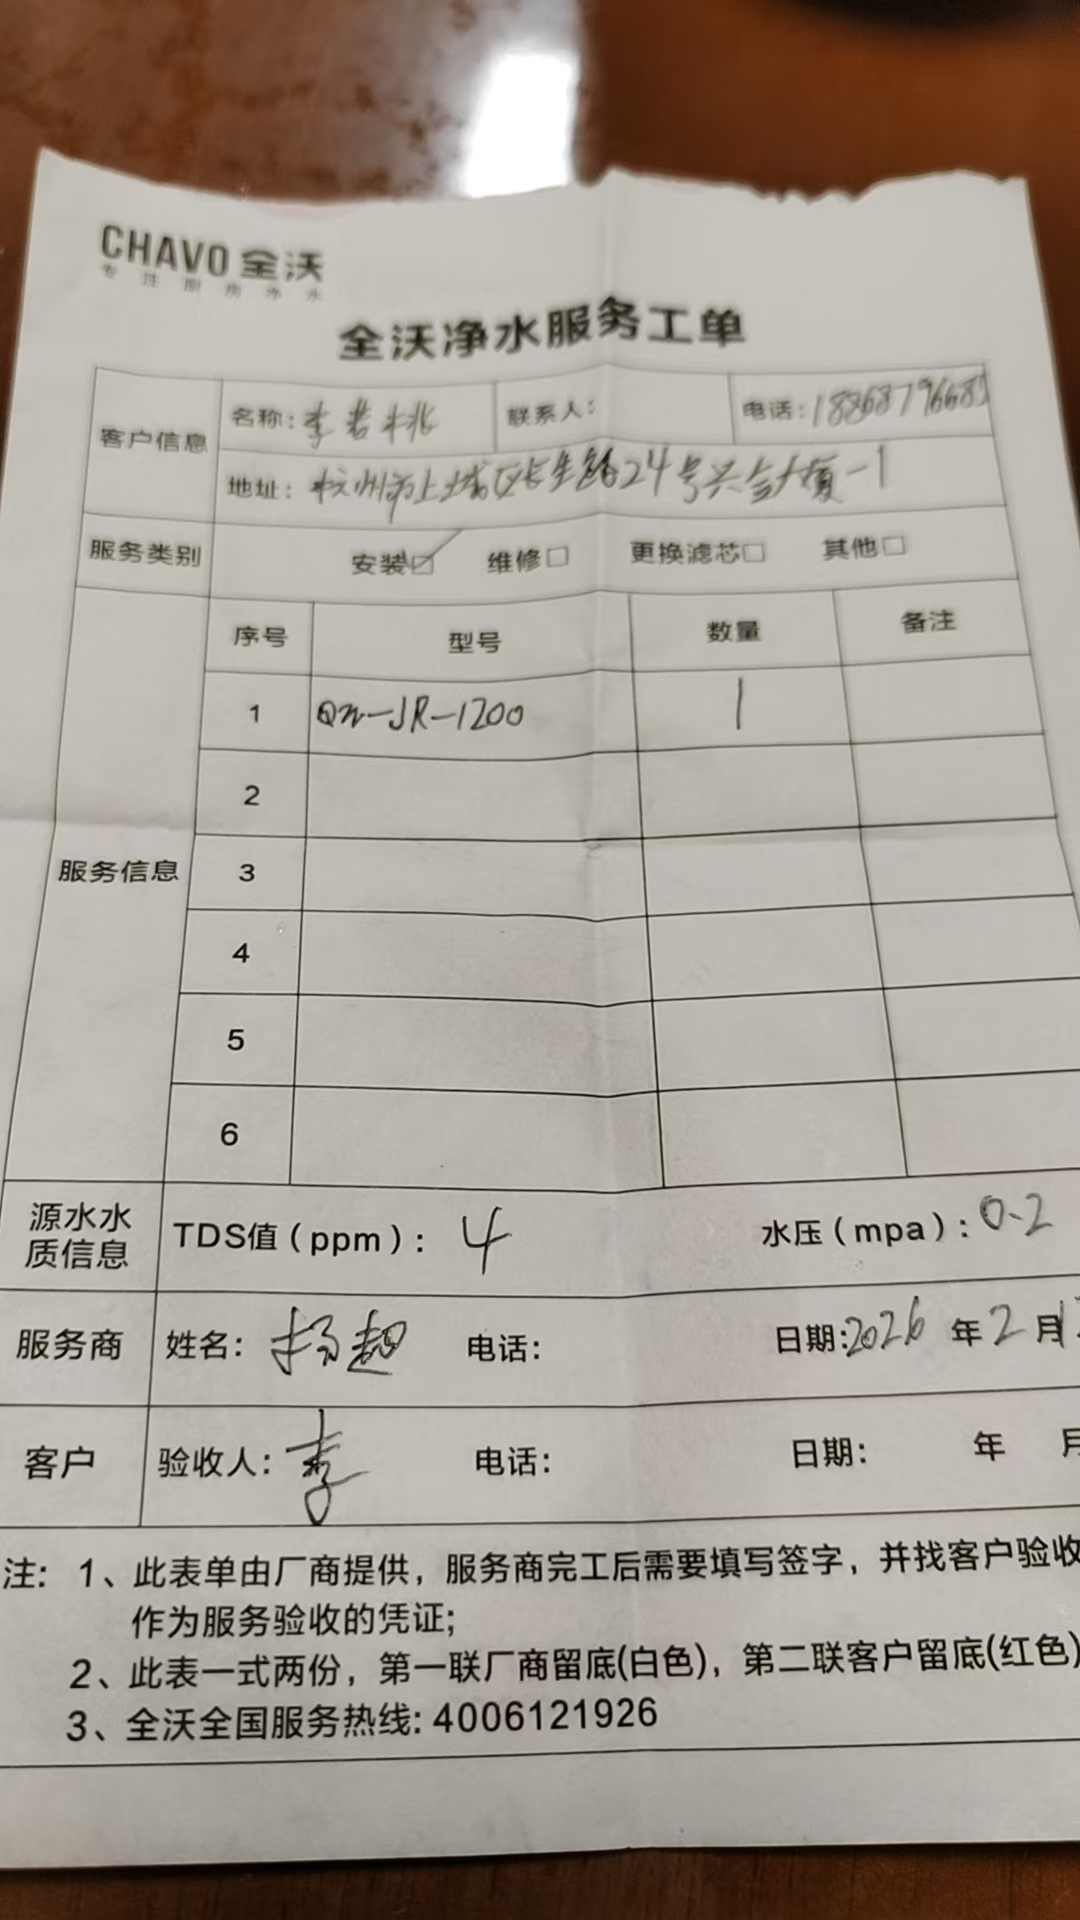 CHAVO 全沃
专注厨房净水
全沃净水服务工单
客户信息 名称: 李若桃 联系人: 电话: 1886879668
地址: 杭州市上城区长生路24号兴合大厦-1
服务类别 安装☑ 维修□ 更换滤芯□ 其他□
服务信息
序号 型号 数量 备注
1 QW-JR-1200 1
2
3
4
5
6
源水水质信息 TDS值(ppm): 4 水压(mpa): 0.2
服务商 姓名: 杨超 电话: 日期: 2026 年 2 月
客户 验收人: 李 电话: 日期: 年 月
注: 1、此表单由厂商提供，服务商完工后需要填写签字，并找客户验收
作为服务验收的凭证;
2、此表一式两份，第一联厂商留底(白色)，第二联客户留底(红色)
3、全沃全国服务热线: 4006121926